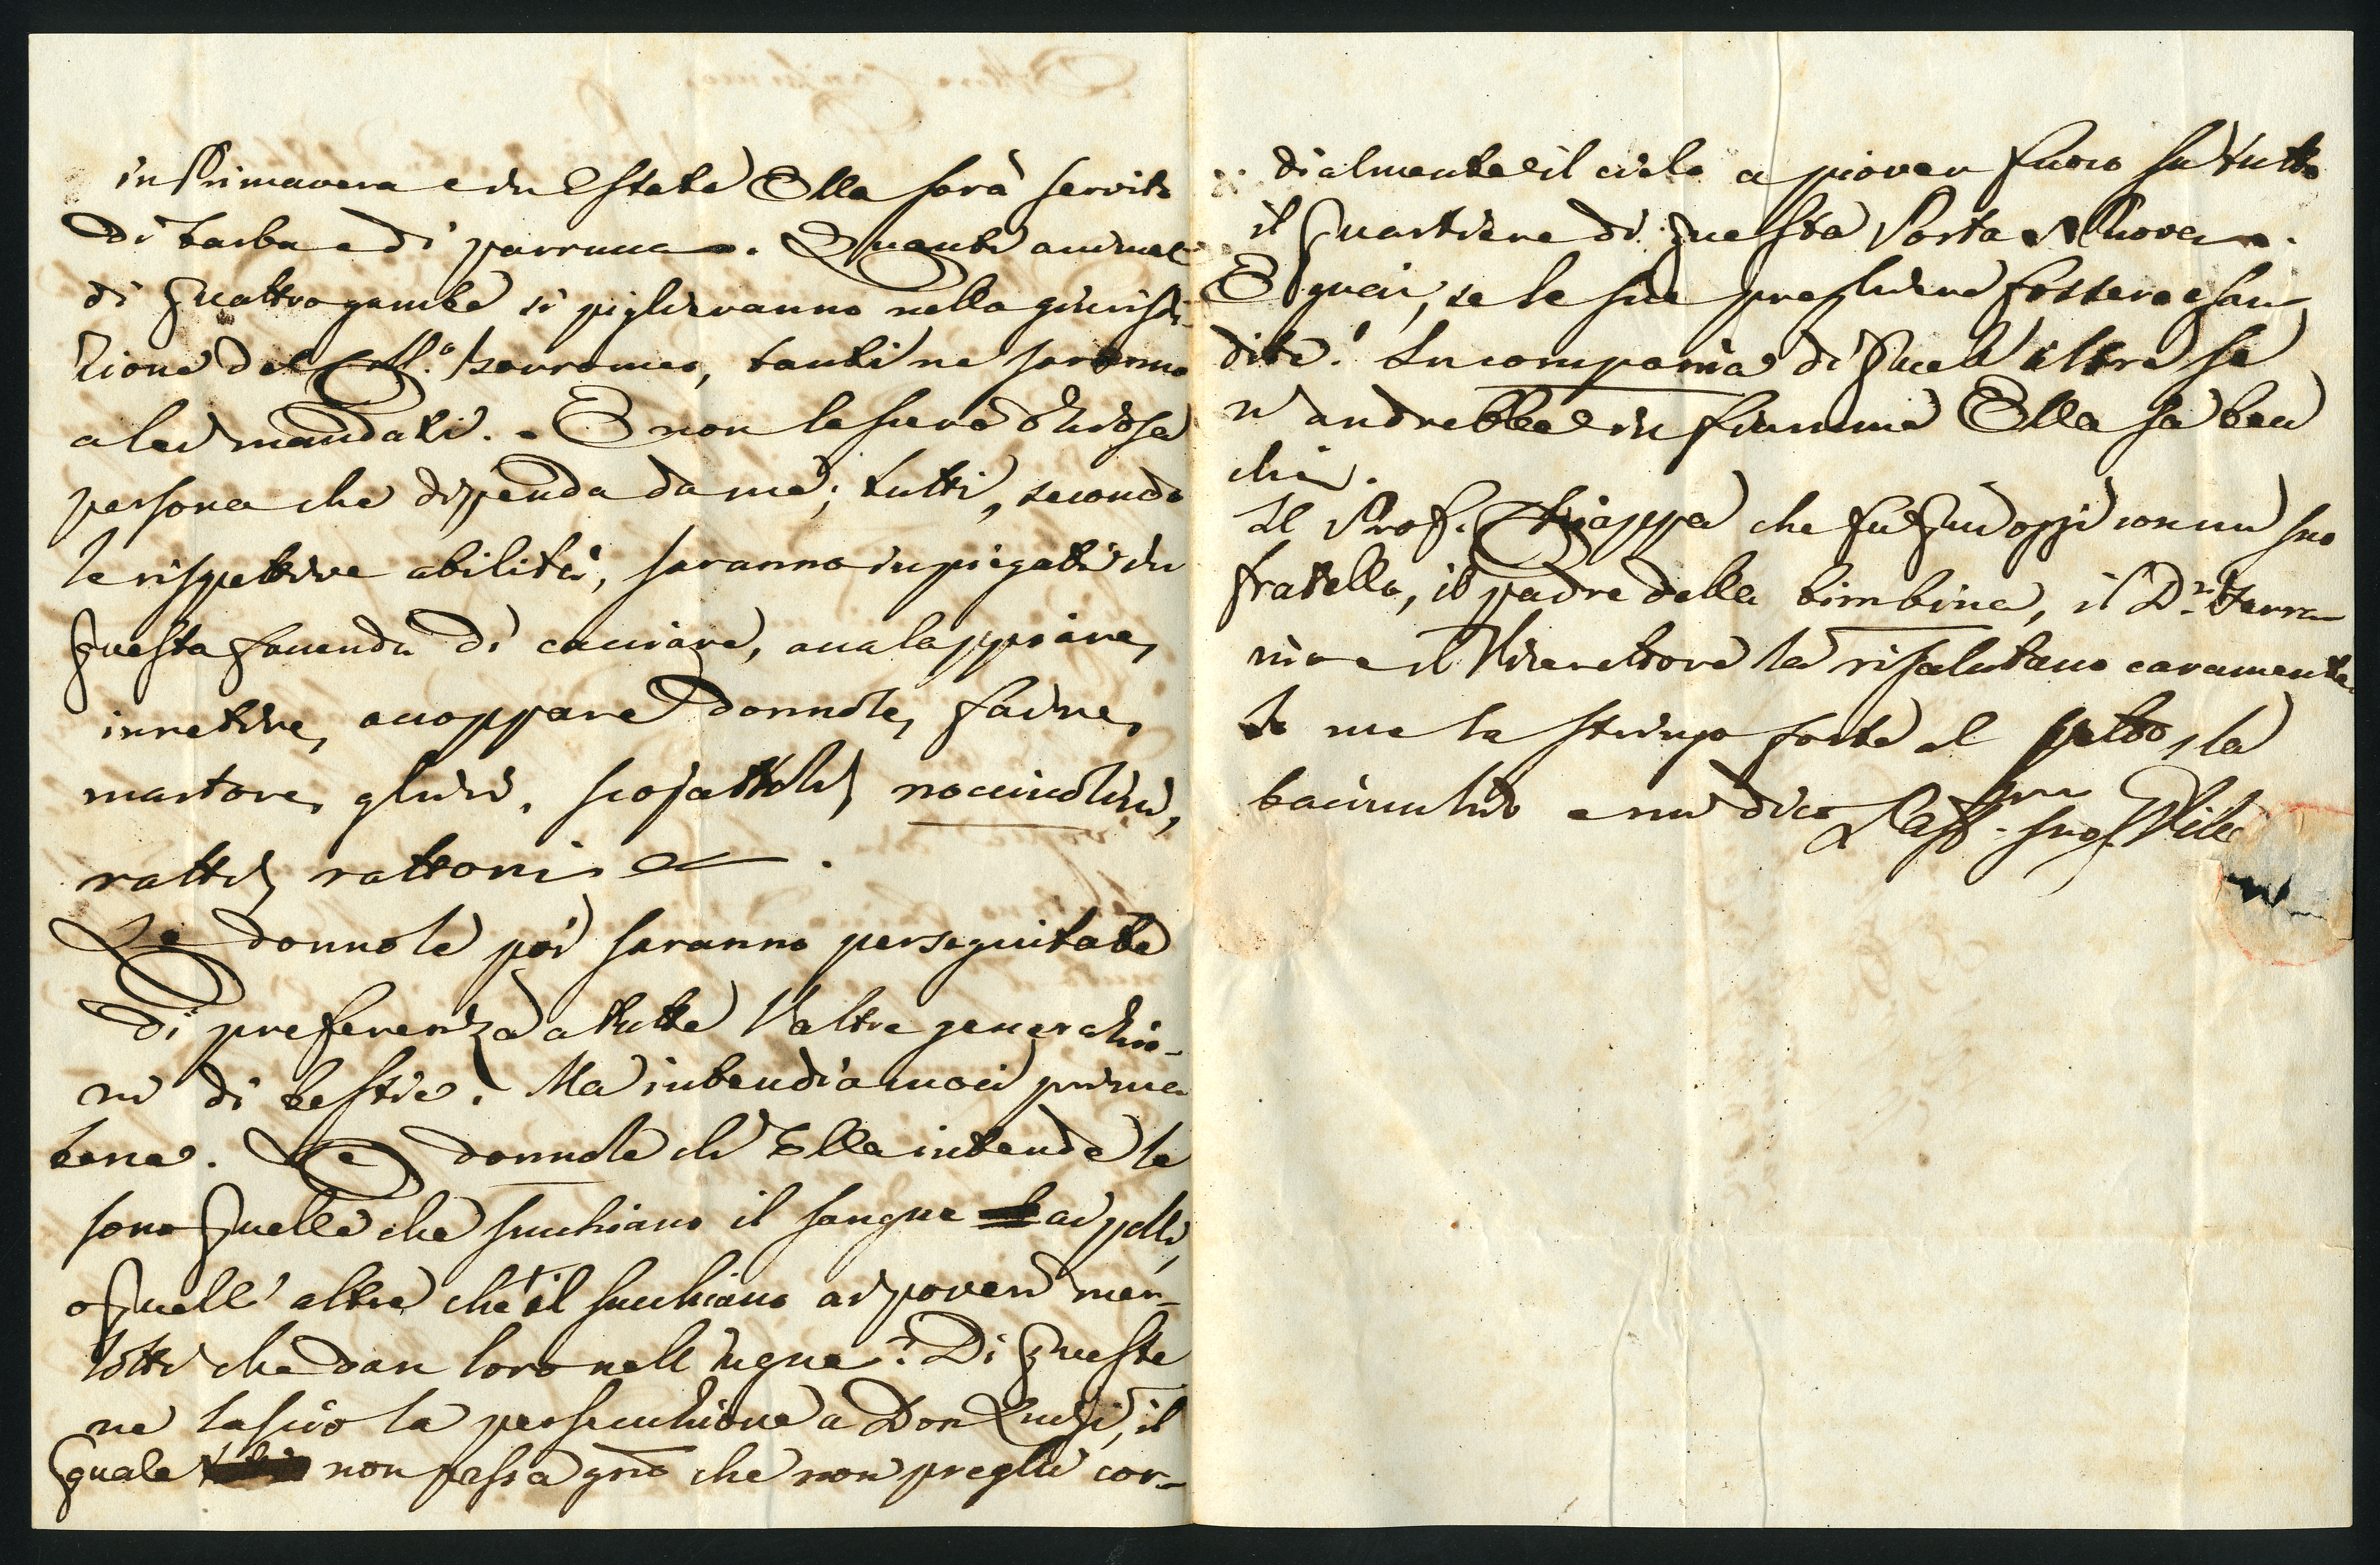 in Primavera e in Estate Ella sarà servito
di barba e di parrucca. Quanti animali
di quattro gambe si piglieranno nella giurisdi-
zione del Coll.º Borromeo, tanti ne saranno
a lei mandati. - E non lascerò oziosa
persona che dipenda da me; tutti, secondo
le rispettive abilità, saranno impiegati in
questa facenda di cacciare, accalappiare,
inretire, accoppare donnole, faine,
martore, ghiri, scojattoli, nocciuolini,
ratti, rattoni &c.
Le donnole poi saranno perseguitate
di preferenza a tutte l'altre generazio-
ni di bestie. Ma intendiamoci prima
bene. Le donnole ch' Ella intende le
sono quelle che succhiano il sangue ai polli,
o quell' altre che il succhiano ai poveri mer-
lotti che dan loro nell' ugne? Di queste
ne lascio la persecuzione a Don Luigi, il
quale non passa gno che non preghi cor-
dialmente il cielo a piover fuoco su tutto
il quartiere di questa Porta Nuova.
E guai, se le sue preghiere fossero esau-
dite! In compagnia di quell' altre se
n' andrebbe in fiamme Ella sa ben
chi.
Il Prof. Chiappa che fu qui oggi con un suo
fratello, il padre della bimbina, il D.r Ferra-
rio e il Vicerettore la risalutano caramente.
Io me la stringo forte al petto, la
baciucchio e mi dico L'aff.mo suo